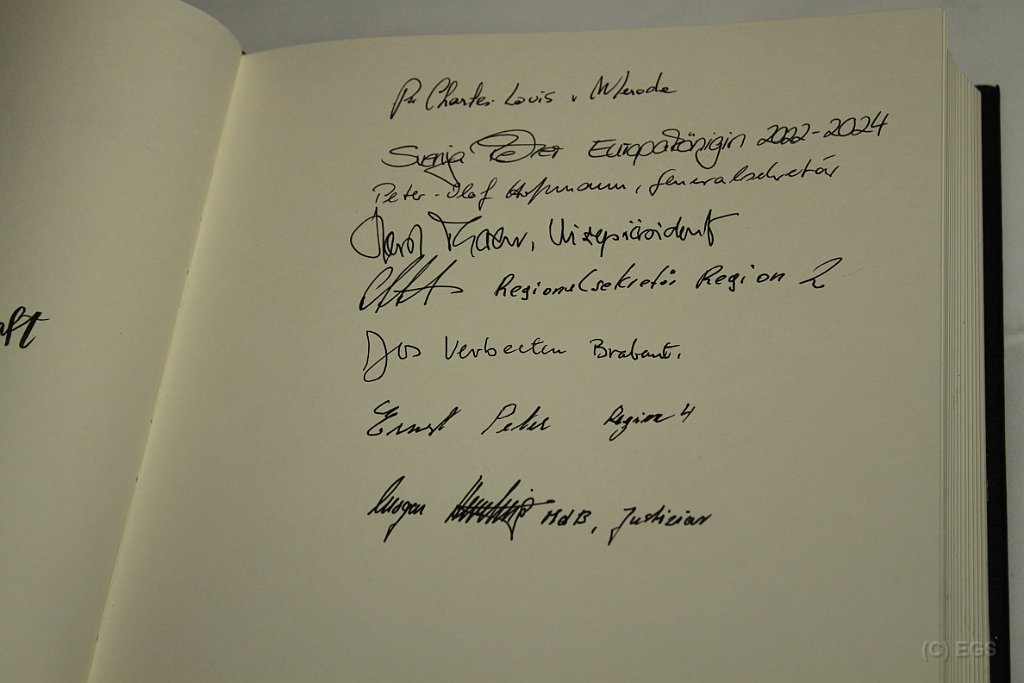 Charles-Louis v. Merode
Svenja Europakönigin 2022-2024
Peter-Olaf Hoffmann, Generalsekretär
Vizepräsident
Regionalsekretär Region 2
Jos Verbeeten Brabant.
Ernst Peter Region 4
MdB, Justiziar
aft
(C) EGS